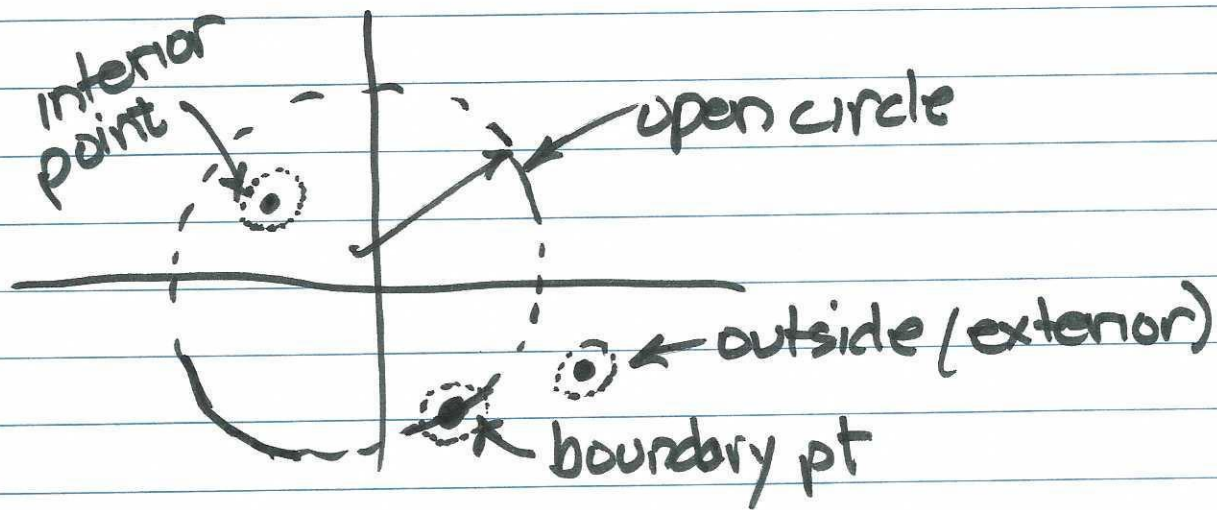 interior
point
open circle
outside (exterior)
boundary pt